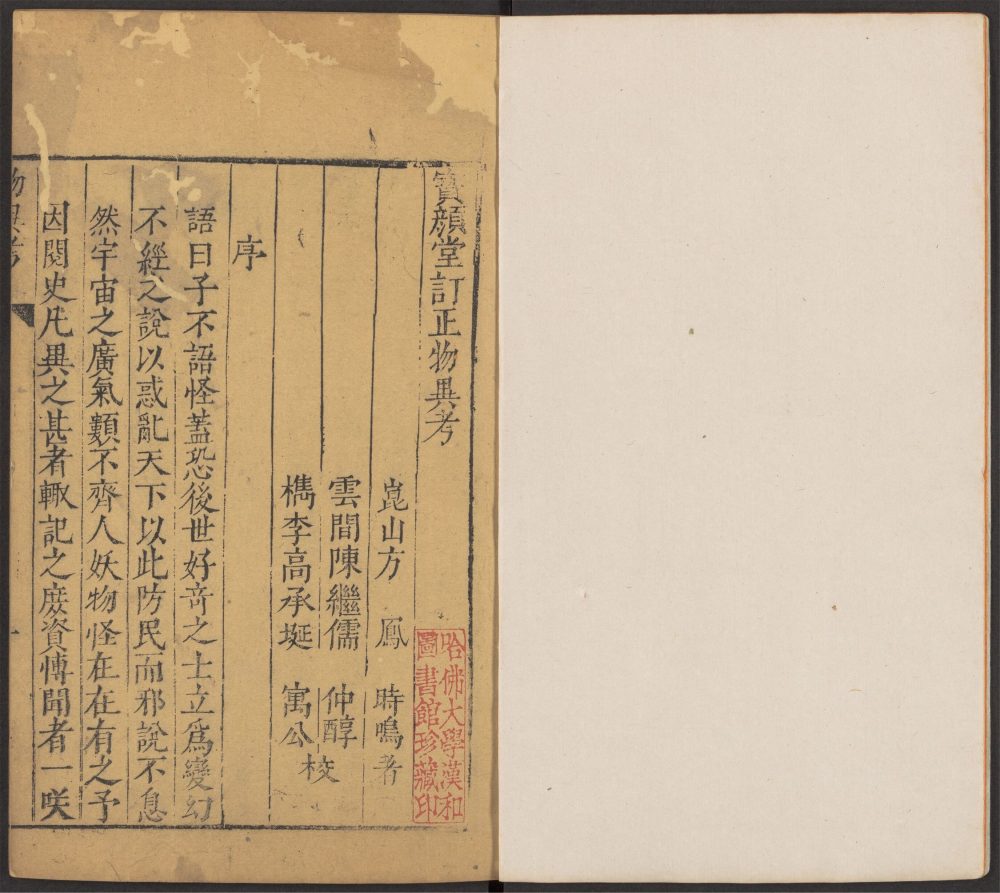 寶顏堂訂正物異考
崑山方　鳳　時鳴著
雲間陳繼儒　仲醇
檇李高承埏　寓公
校
序
語曰子不語怪蓋恐後世好竒之士立爲變幻
不經之說以惑亂天下以此防民而邪說不息
然宇宙之廣氣類不齊人妖物怪在在有之予
因閱史凡異之甚者輙記之庻資博聞者一咲
物異考
一
哈佛大學漢和
圖書館珍藏印